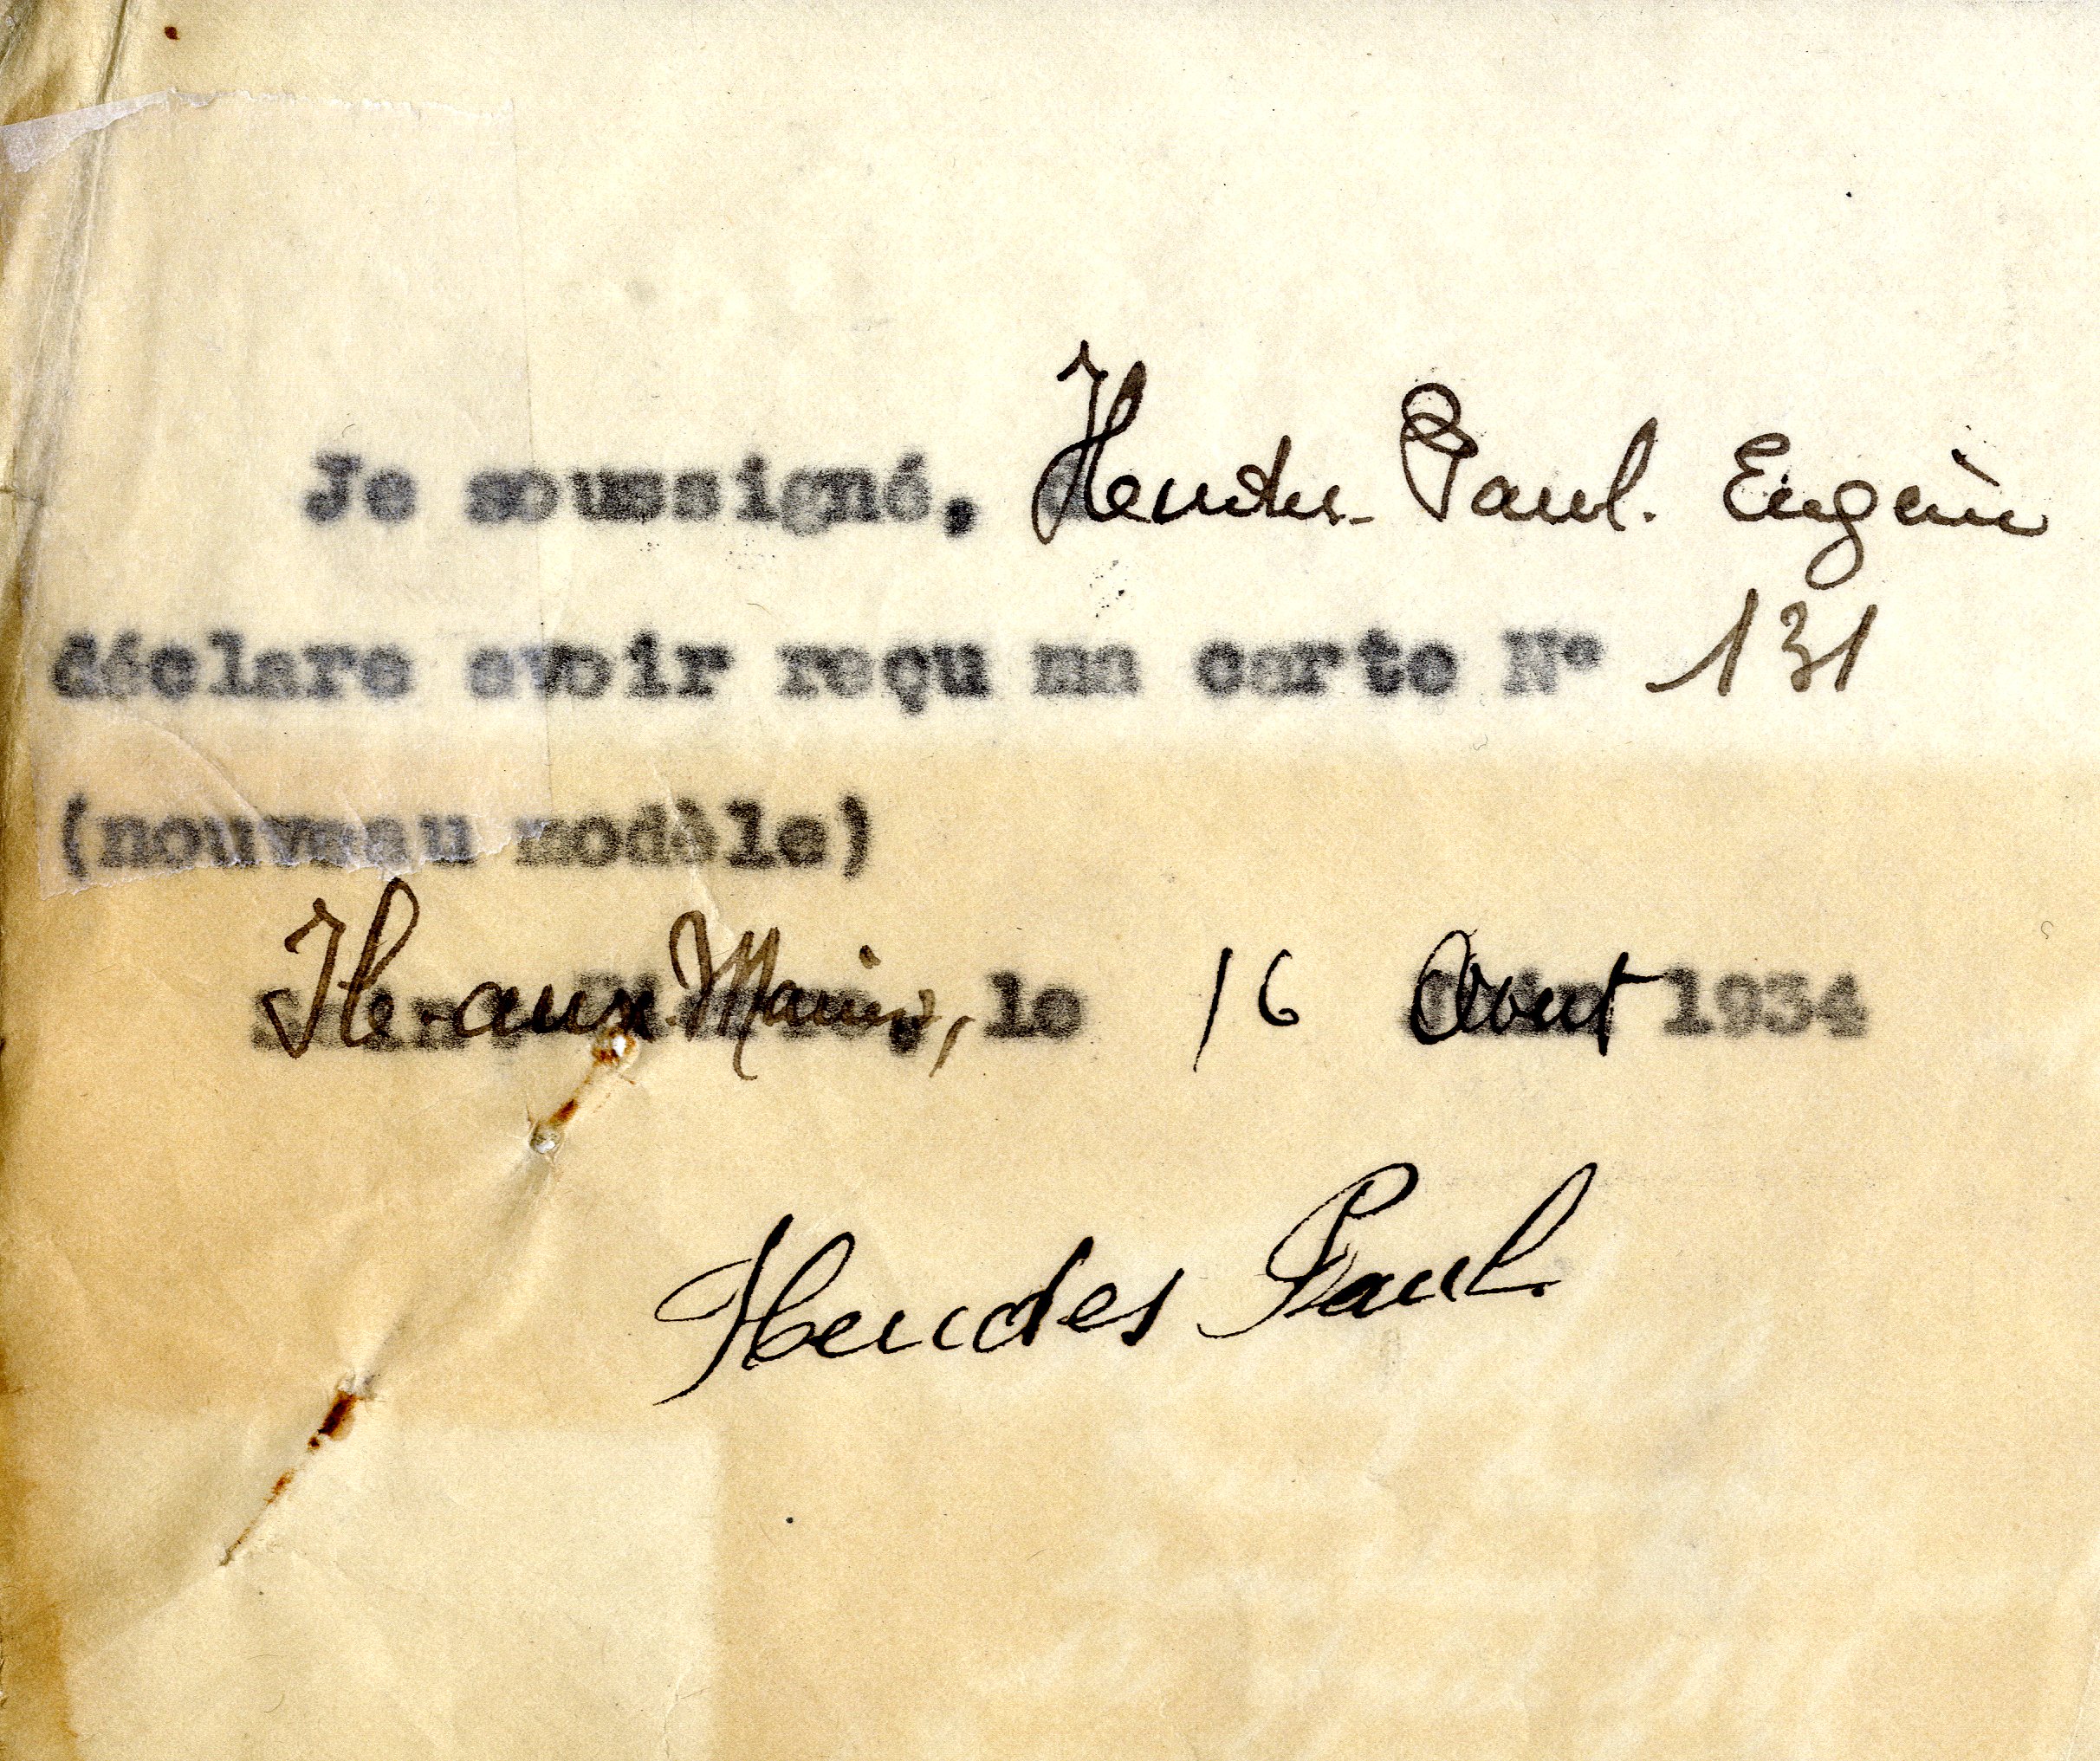 Je soussigné, Hendes Paul. Eugène
déclare avoir reçu ma carte N° 131
(nouveau modèle)
Ile-aux-Marins, le 16 Aout 1934
Hendes Paul.